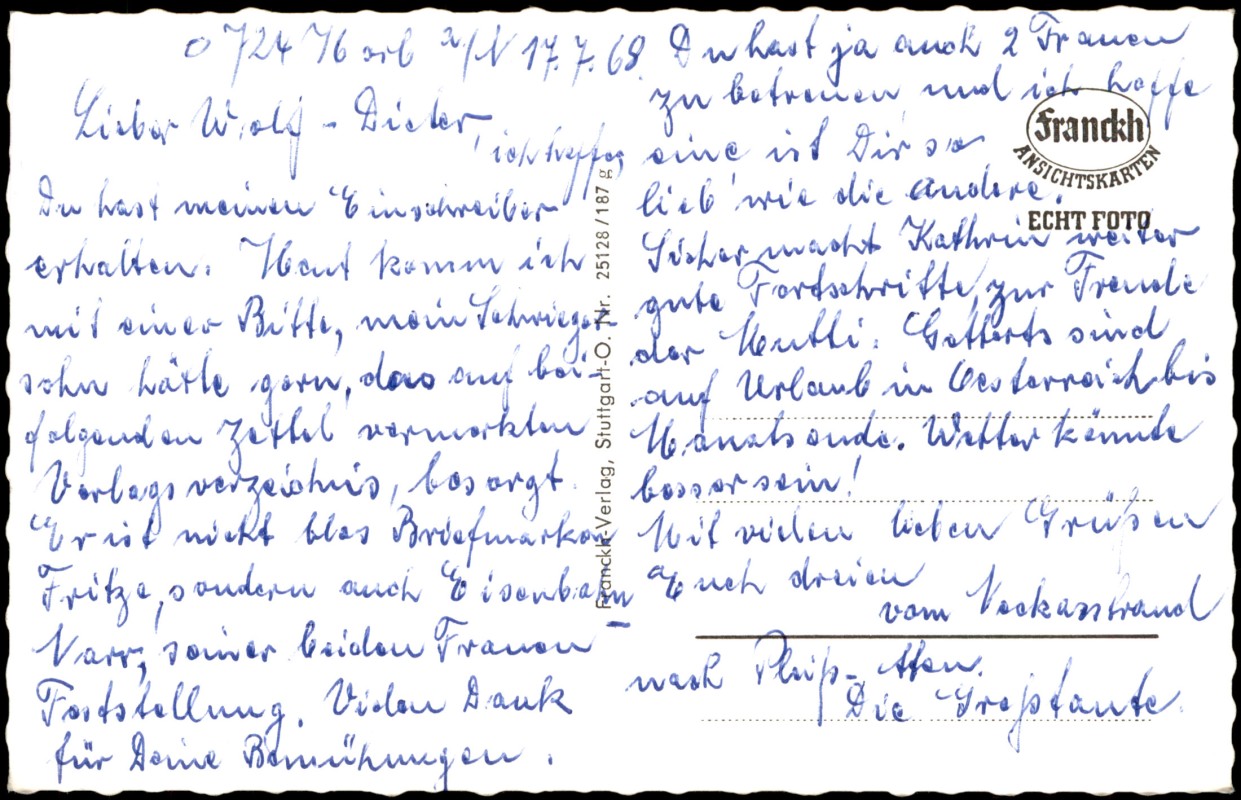 724 Horb a/N 17.7.68.
Lieber Wolf-Dieter,
ich hoffe,
Du hast meinen Einschreiber
erhalten. Heut komm ich
mit einer Bitte, mein Schwieger-
sohn hätte gern, das auf bei-
folgenden Zettel vermerkten
Verlagsverzeichnis, besorgt.
Er ist nicht blos Briefmarken
Fritze, sondern auch Eisenbahn-
Narr, seiner beiden Frauen
Feststellung. Vielen Dank
für Deine Bemühungen.
Du hast ja auch 2 Frauen
zu betreuen und ich hoffe
eine ist Dir so
lieb wie die andere.
Sicher macht Kathrin weiter
gute Fortschritte, zur Freude
der Mutti. Gotterts sind
auf Urlaub in Oesterreich bis
Monatsende. Wetter könnte
besser sein!
Mit vielen lieben Grüßen
Euch dreien
vom Neckarstrand
nach
Die Großtante.
Franckh
ANSICHTSKARTEN
ECHT FOTO
Franckh-Verlag, Stuttgart-O. Nr. 25128/187 g